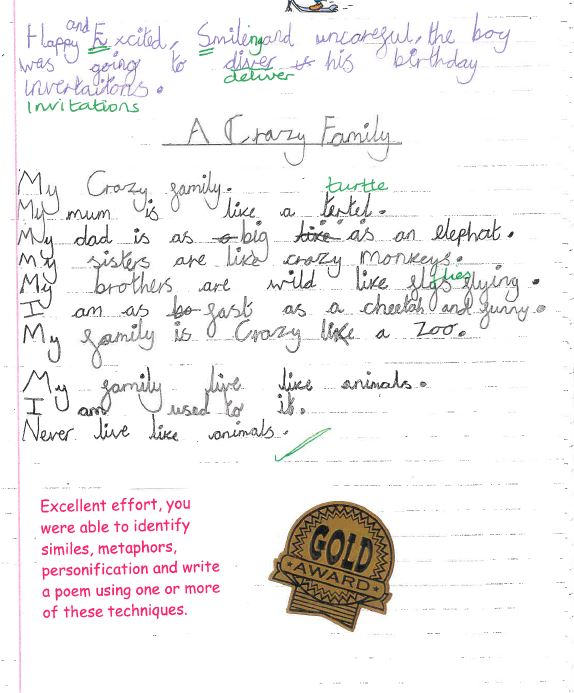 and
Happy Excited, Smileing and uncareful, the boy
was going to diver his birthday
deliver
invertaitons.
Invitations
A Crazy Family
My Crazy family.
turtle
My mum is like a tertel.
My dad is as big like as an elephat.
My sisters are like crazy monkeys.
flies
My brothers are wild like flys flying.
I am as fast as a cheetah and funny.
My family is Crazy like a Zoo.
My family live like animals.
I am used to it.
Never live like animals.
Excellent effort, you
were able to identify
similes, metaphors,
personification and write
a poem using one or more
of these techniques.
GOLD
AWARD